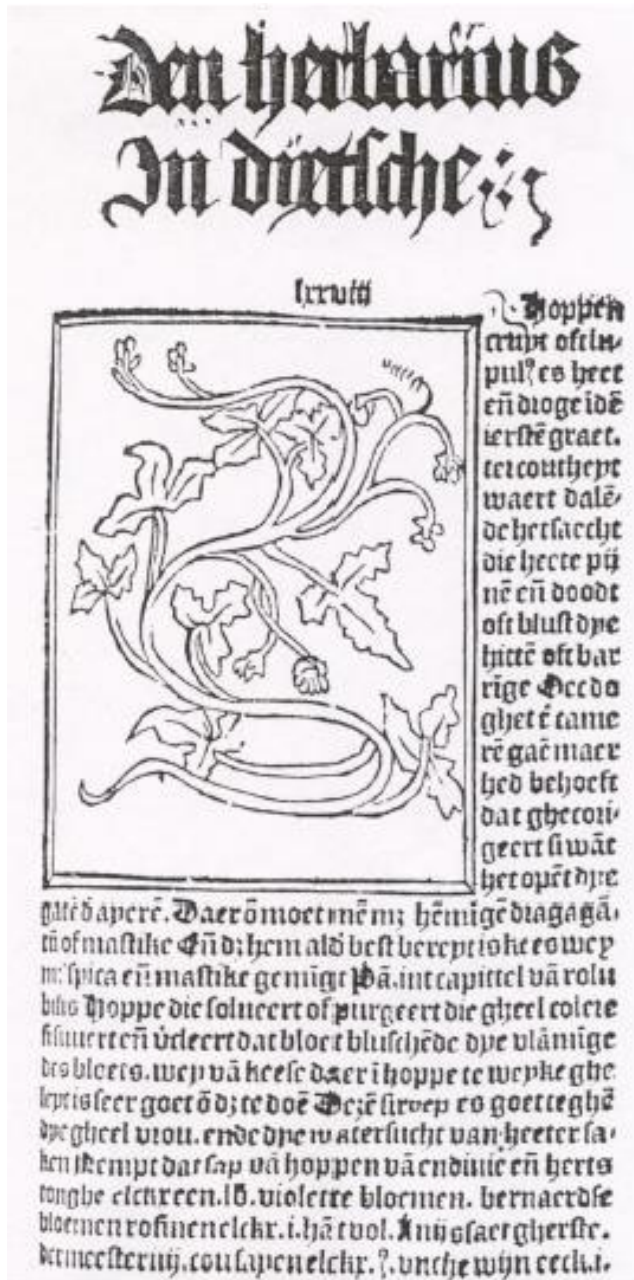 Den herbarius
In dietsche
lxxviii
Hoppen
cruyt oft lu-
pul⁹ es heet
en̄ droge ī dē
iersten̄ graet.
waert dalē-
de het saecht
die heete pij
nē en̄ doodt
oft blust dye
hittē oft bar
Oec do
ghet
rē gaē maer
hed behoeft
dat ghecorri-
geert si wāt
het opēt dye
Daerō moet mē
of mastike En̄ hem best bereyt is wey
spica en̄ mastike gemīgt int capittel vā volu
bilis Hoppe die solueert of purgeert die gheel colere
en̄ dat bloet bluschēde dye vlāmīge
des bloets. wey vā keese daer ī hoppe te weyke ghe
leyt is seer goet te doē Dezē siroep es goet teghē
dye gheel vrou. ende dye watersucht van heeter sa-
ken Nempt dat sap vā hoppen vā endiuie en̄ herts
tonghe elckreen. violette bloemen. bernaerdse
bloemen rosinen elckr. i. hāt vol. Anijs saet gherste.
elckr. vnche wijn eeck. i.